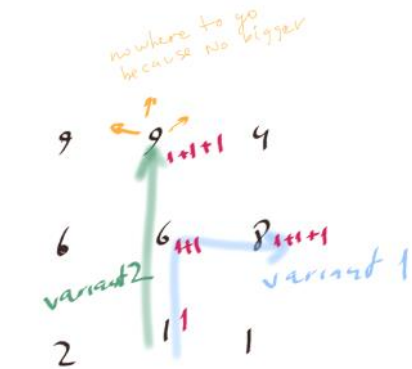 nowhere to go
because no bigger
9 9 1+1+1 4
6 6 1+1 8 1+1+1
variant 2 variant 1
2 1 1 1